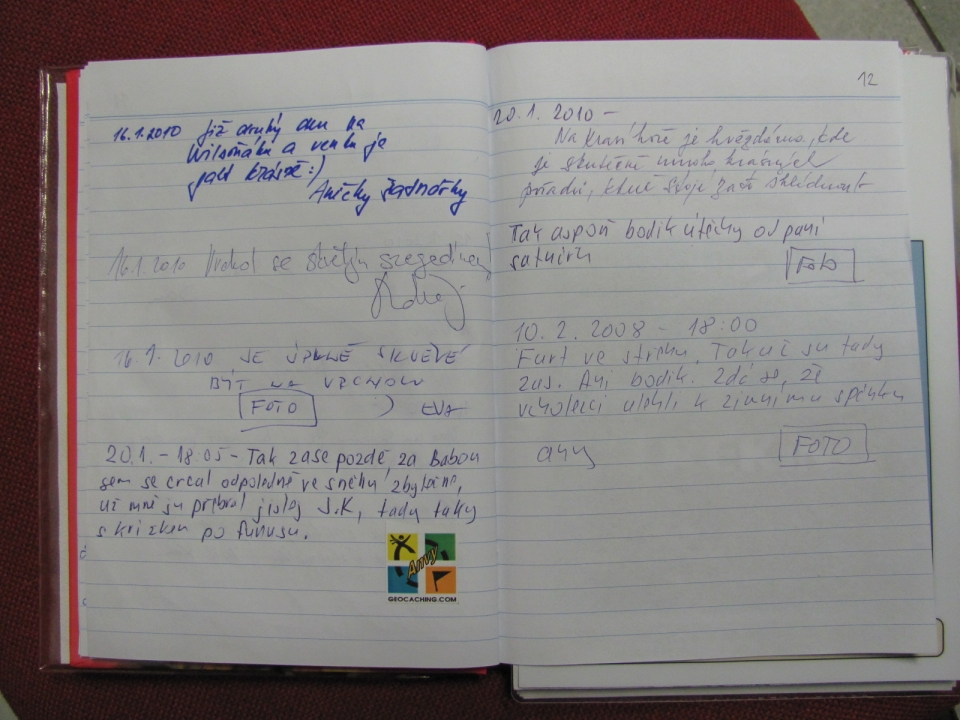 16.1.2010 Již druhý den na
Wilsoňáku a venku je
jaksi krásně :)
Aničky Šádnôčky
16.1.2010 se
16.1.2010 JE ÚPLNĚ SKVĚLÉ
BÝT NA VRCHOLU
FOTO :) EVA
20.1. - 18:05 - Tak zase pozdě za Babou
sem se crcal odpoledně ve sněhu zbytečně,
už mně ju přebral jistej J.K, tady taky
s křížkem po funusu.
Amvy
GEOCACHING.COM
12
20.1. 2010 -
Na Kraví hoře je hvězdárna, kde
je skutečně mnoho krásných
pořadů, které stojí za to shlédnout
Tak aspoň bodík útěchy od paní
Foto
10.2.2008 - 18:00
Furt ve střehu. Tak už su tady
zas. Ani bodík. Zdá se, že
ulehli k zimnímu spánku
FOTO